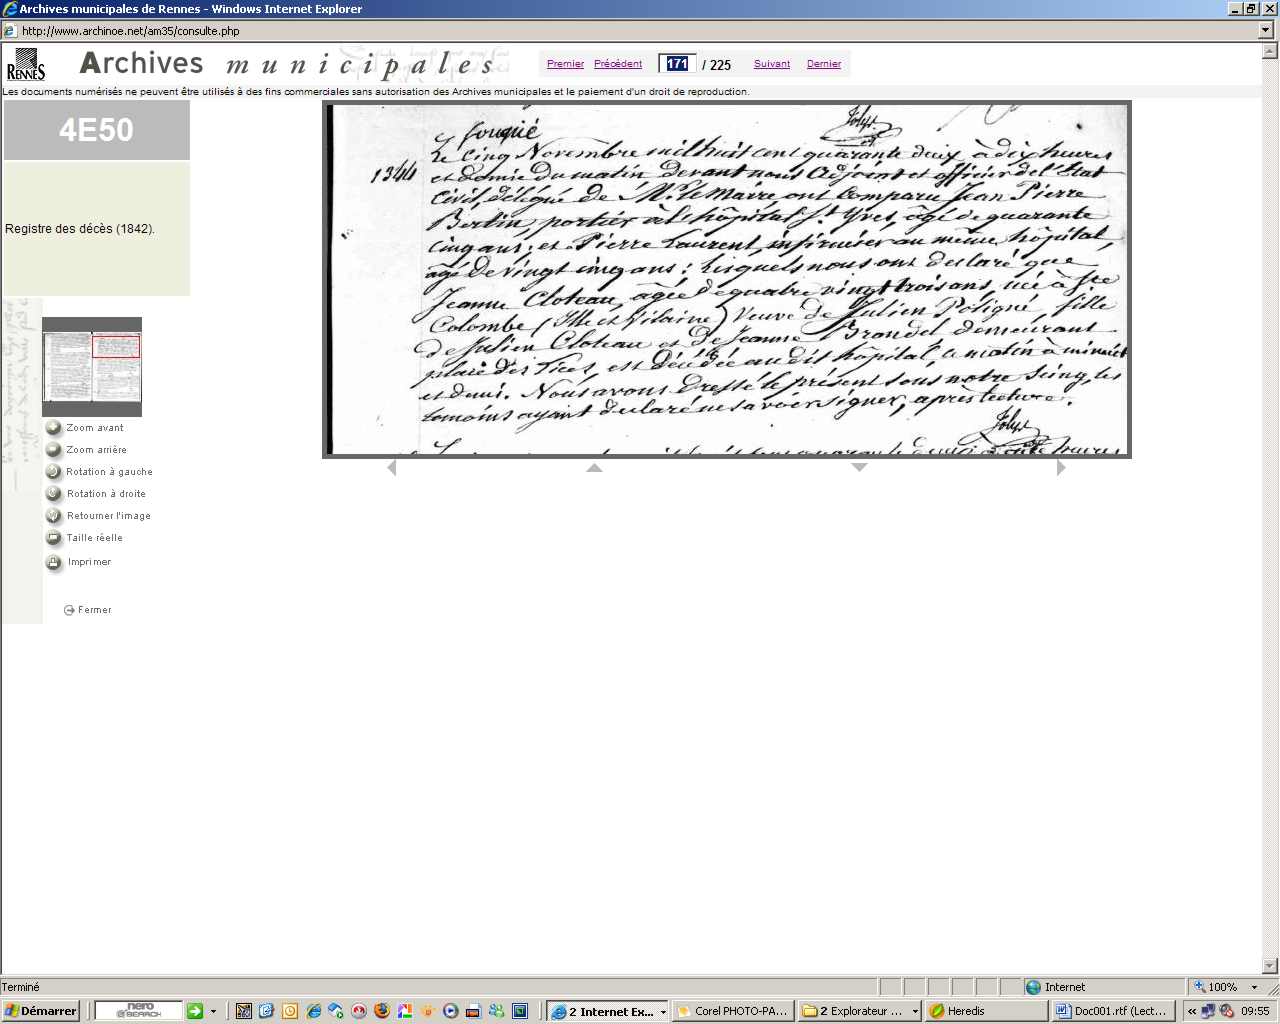 Archives municipales de Rennes - Windows Internet Explorer
http://www.archinoe.net/am35/consulte.php
RENNES
Archives municipales
Premier Précédent 171 / 225 Suivant Dernier
Les documents numérisés ne peuvent être utilisés à des fins commerciales sans autorisation des Archives municipales et le paiement d'un droit de reproduction.
4E50
Registre des décès (1842).
Zoom avant
Zoom arrière
Rotation à gauche
Rotation à droite
Retourner l'image
Taille réelle
Imprimer
Fermer
fouqué
Jolys
1344
Le Cinq Novembre mil huit cent quarante deux, à dix heures
et demie du matin devant nous Adjoint et officier de l'Etat
Civil, délégué de Mr. le Maire ont Comparu Jean Pierre
Bertin, portier à l'hôpital St. Yves, âgé de quarante
cinq ans; et Pierre Laurent, infirmier au même hôpital,
âgé de vingt cinq ans; lesquels nous ont declaré que
Jeanne Cloteau, âgée de quatre vingt trois ans, née à Ste
Colombe (Ille et Vilaine) Veuve de Julien Poligné, fille
de Julien Cloteau et de Jeanne demeurant
place des Lices, est décédée au dit hôpital, ce matin à minuit
et demi. Nous avons Dressé le présent sous notre Seing, les
temoins ayant declaré ne savoir signer, après lecture.
Jolys
Terminé
Internet
100%
Démarrer
nero
SEARCH
2 Internet Ex...
Corel PHOTO-PA...
2 Explorateur ...
Heredis
Doc001.rtf (Lect...
09:55